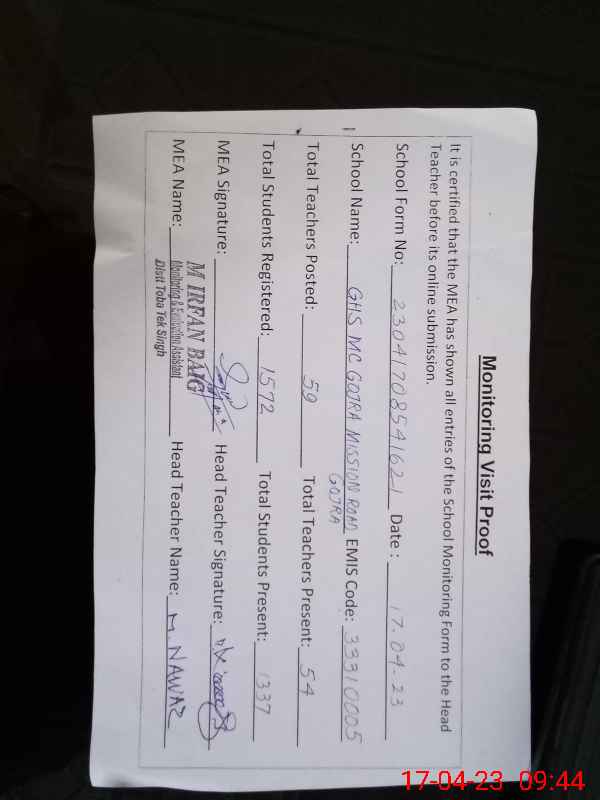 Monitoring Visit Proof
It is certified that the MEA has shown all entries of the School Monitoring Form to the Head
Teacher before its online submission.
School Form No: 23041708541621 Date : 17.04.23
School Name: GHS MC GOJRA MISSION ROAD GOJRA EMIS Code: 33310005
Total Teachers Posted: 59 Total Teachers Present: 54
Total Students Registered: 1572 Total Students Present: 1337
MEA Signature: Head Teacher Signature:
MEA Name: M IRFAN BAIG Head Teacher Name: M. NAWAZ
Monitoring & Evaluation Assistant
Distt Toba Tek Singh
17-04-23 09:44